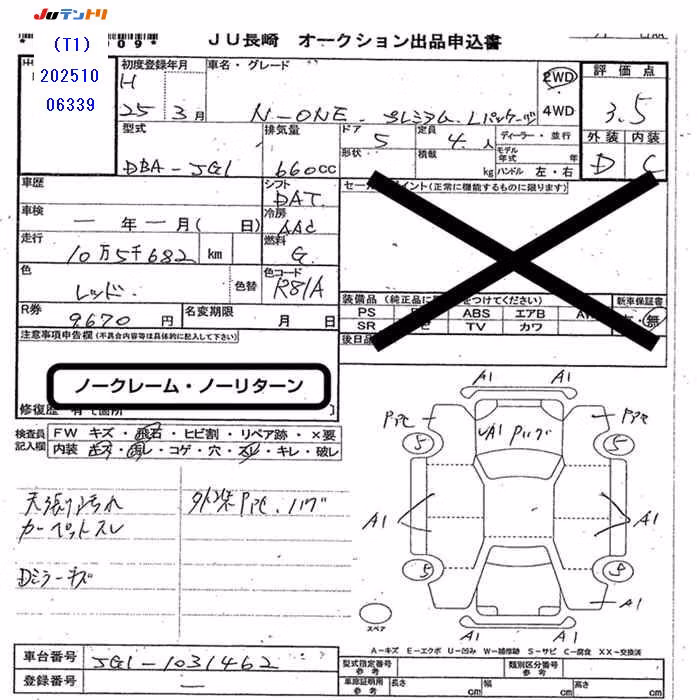 JUテントリ
(T1)
202510
06339
JU長崎 オークション出品申込書
初度登録年月 車名・グレード 2WD 評価点
H 25 3月 N-ONE プレミアム Lパッケージ 4WD 3.5
外装 内装
D C
型式 排気量 ドア 定員 ディーラー・並行
DBA-JG1 660cc 5 4人
形状 積載 kg モデル年式 年 ハンドル 左・右
車歴 シフト DAT セールスポイント(正常に機能するものに限ります)
車検 ー年ー月( 日) 冷房 AAC
走行 10万5千682 km 燃料 G
色 レッド 色替 色コード R81A
装備品 (純正品に つけてください) 新車保証書
PS ABS エアB 無
SR TV カワ
R券 9670円 名変期限 月 日
後日品
注意事項申告欄 (不具合内容等は具体的に記入して下さい)
ノークレーム・ノーリターン
修復歴 有[箇所 ]
検査員記入欄 FW キズ・飛石・ヒビ割・リペア跡・×要
内装 ・コゲ・穴・スレ・キレ・破レ
天張り汚れ 外装Pアセ、ハゲ
カーペットスレ
Dミラーキズ
A1 A1
Pアセ A1 Pハゲ Pアセ
5 5
A1 A1
5
A1 A1
スペア
A-キズ E-エクボ U-凹み W-補修跡 S-サビ C-腐食 XX-交換済
車台番号 JG1-1031462
登録番号 ー
型式指定番号 参考 類別区分番号 参考
車庫証明用 参考 長さ cm 幅 cm 高さ cm